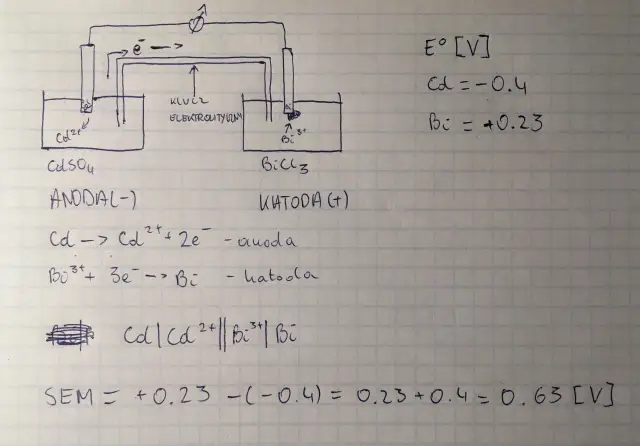 e⁻ →
E° [V]
Cd = -0.4
Bi = +0.23
KLUCZ
ELEKTROLITYCZNY
Cd²⁺
Bi³⁺
CdSO₄
BiCl₃
ANODA(-)
KATODA(+)
Cd → Cd²⁺ + 2e⁻ - anoda
Bi³⁺ + 3e⁻ → Bi - katoda
Cd|Cd²⁺||Bi³⁺|Bi
SEM = +0.23 -(-0.4) = 0.23 + 0.4 = 0.63 [V]